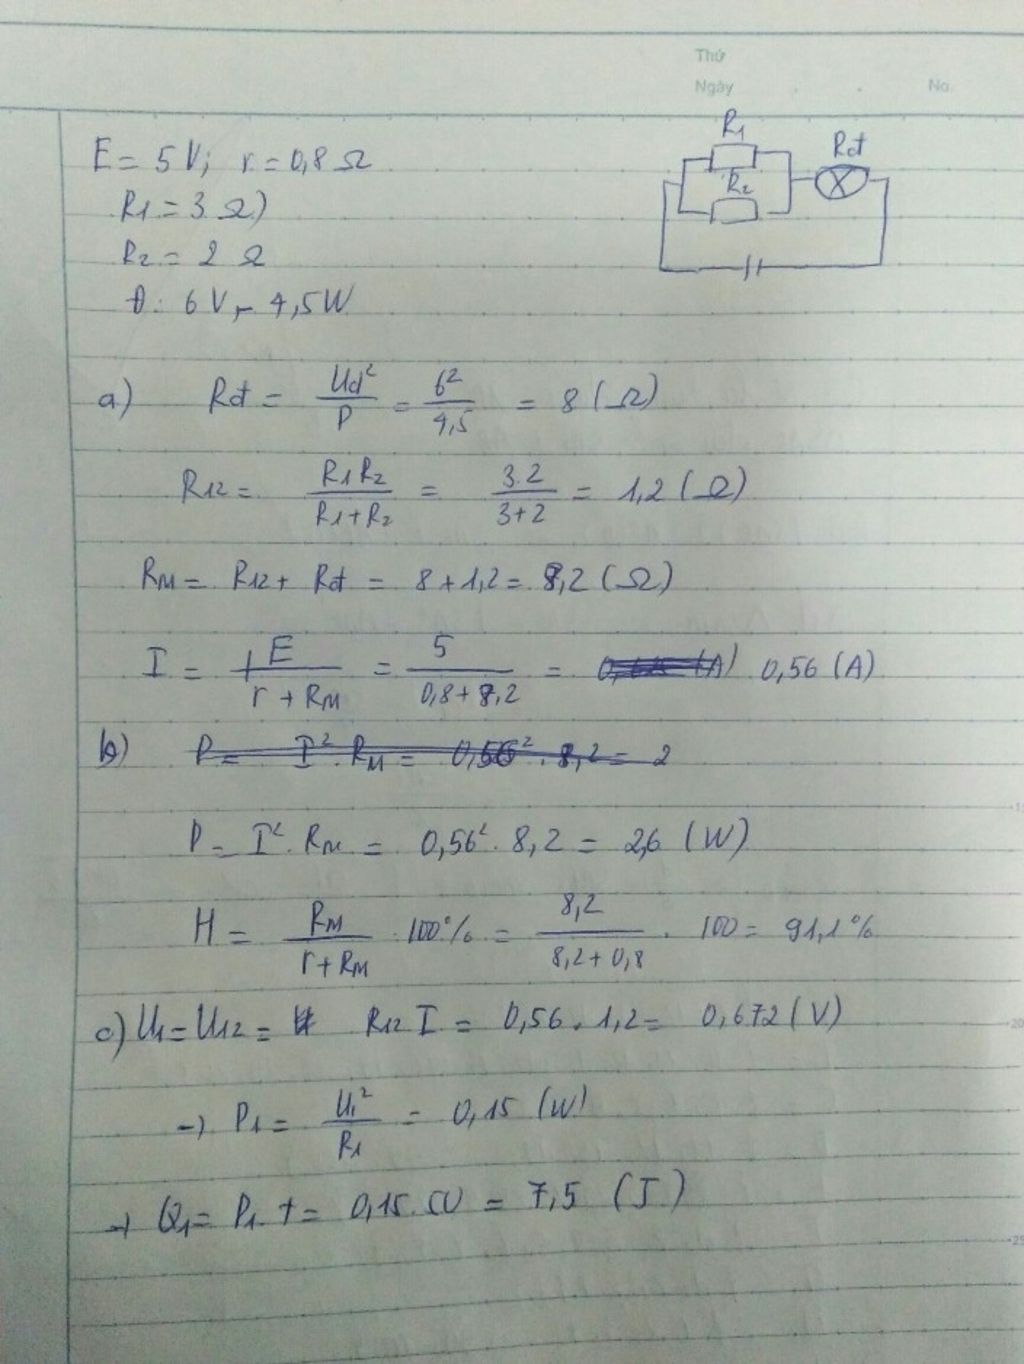 Thứ
Ngày
No
R1
R2
Rđ
E = 5 V; r = 0,8 Ω
R1 = 3 Ω)
R2 = 2 Ω
Đ: 6 V - 4,5W
a) Rđ = Uđ² / P = 6² / 4,5 = 8 (Ω)
R12 = R1R2 / R1+R2 = 3.2 / 3+2 = 1,2 (Ω)
RM = R12 + Rđ = 8 + 1,2 = 8,2 (Ω)
I = E / r + RM = 5 / 0,8 + 8,2 = 0,56 (A)
b) P = I². RM = 0,56². 8,2 = 2
P = I². RM = 0,56². 8,2 = 2,6 (W)
H = RM / r + RM . 100% = 8,2 / 8,2 + 0,8 . 100 = 91,1%
c) U1 = U12 = R12 I = 0,56 . 1,2 = 0,672 (V)
→ P1 = U1² / R1 = 0,15 (W)
→ Q1 = P1. t = 0,15. 50 = 7,5 (J)
20
25